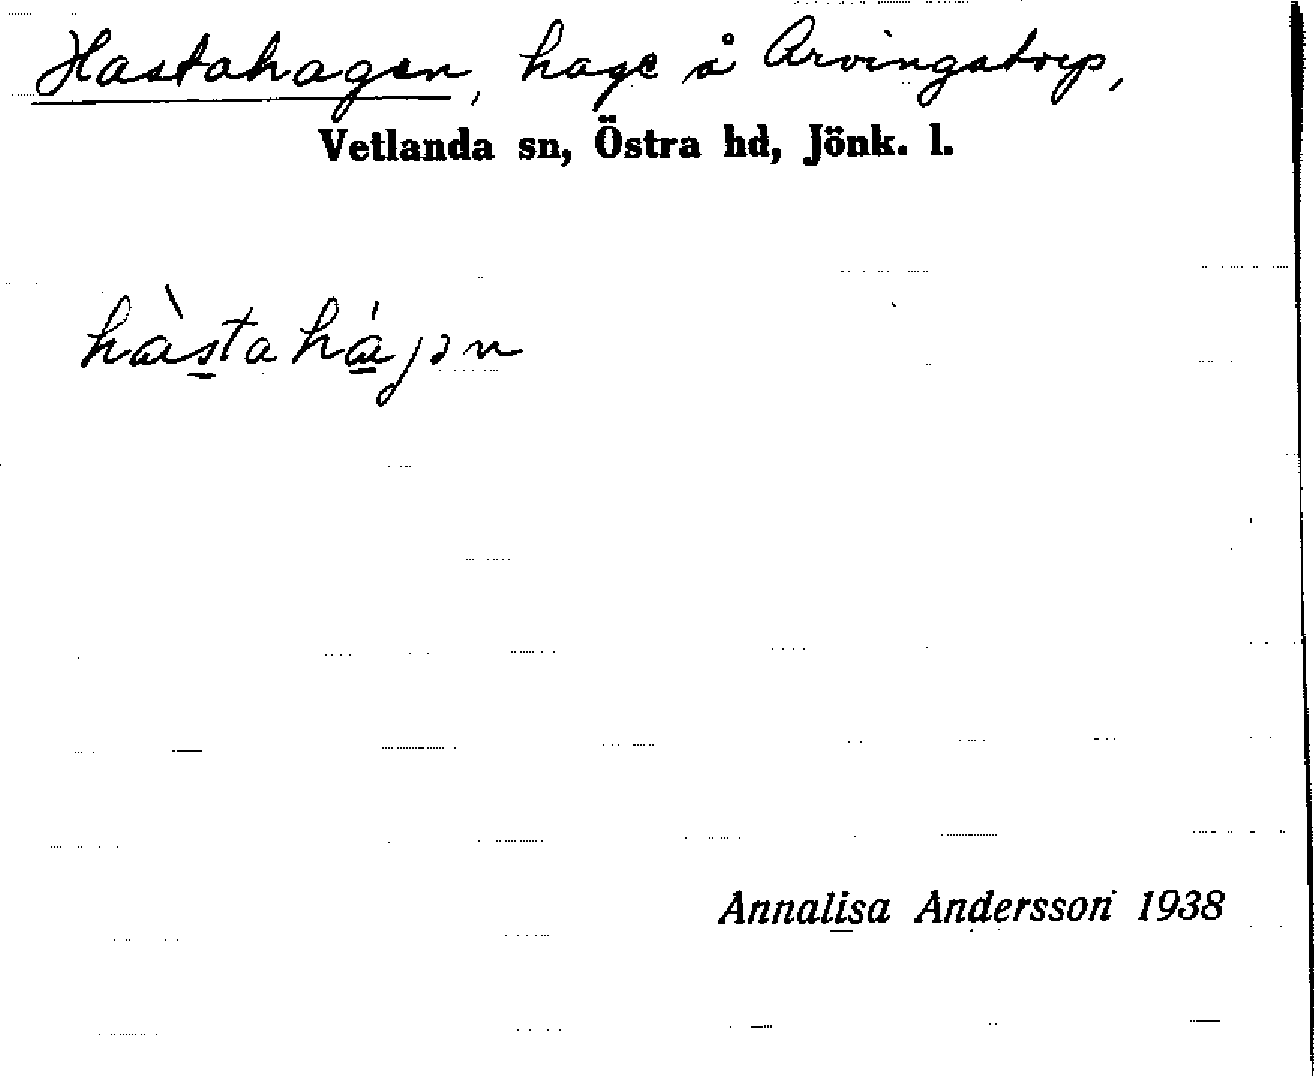 Hastahagen, hage å Arvingatorp,
Vetlanda sn, Östra hd, Jönk. l.
Annalisa Andersson 1938